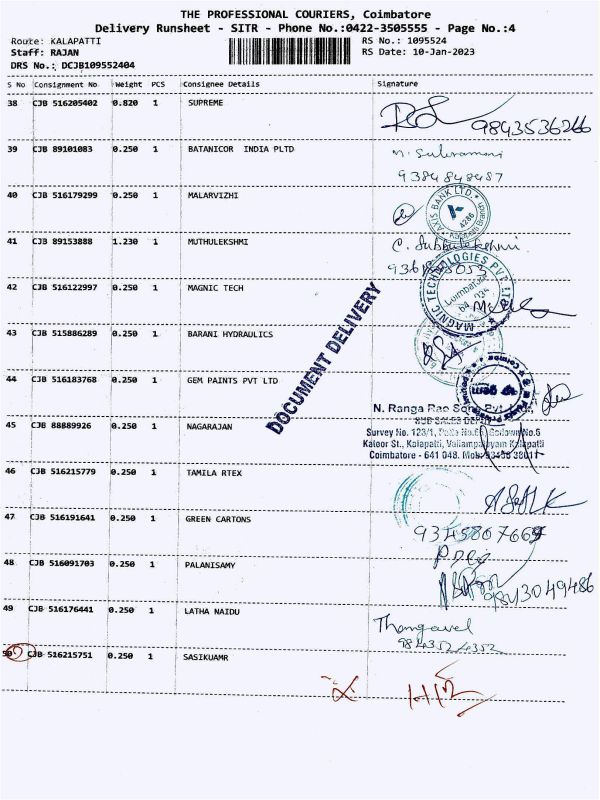 THE PROFESSIONAL COURIERS, Coimbatore
Delivery Runsheet - SITR - Phone No.:0422-3505555 - Page No.:4
Route: KALAPATTI
RS No.: 1095524
Staff: RAJAN
RS Date: 10-Jan-2023
DRS No.: DCJB109552404
S No Consignment No. Weight PCS Consignee Details Signature
38 CJB 516205402 0.820 1 SUPREME
9843536266
39 CJB 89101083 0.250 1 BATANICOR INDIA PLTD
9384848487
40 CJB 516179299 0.250 1 MALARVIZHI
AXIS BANK LTD.
4286
41 CJB 89153888 1.230 1 MUTHULEKSHMI
42 CJB 516122997 0.250 1 MAGNIC TECH
MAGNIC TECHNOLOGIES PVT LTD
Coimbatore
43 CJB 515886289 0.250 1 BARANI HYDRAULICS
DOCUMENT DELIVERY
44 CJB 516183768 0.250 1 GEM PAINTS PVT LTD
gem
45 CJB 88889926 0.250 1 NAGARAJAN
N. Ranga Rao Sons Pvt. Ltd.,
Survey No. 123/1,
Kaloor St., Kalapatti, Valiampalayam Kalapatti
Coimbatore - 641 048.
46 CJB 516215779 0.250 1 TAMILA RTEX
47 CJB 516191641 0.250 1 GREEN CARTONS
48 CJB 516091703 0.250 1 PALANISAMY
9843049486
49 CJB 516176441 0.250 1 LATHA NAIDU
Thangavel
50 CJB 516215751 0.250 1 SASIKUAMR